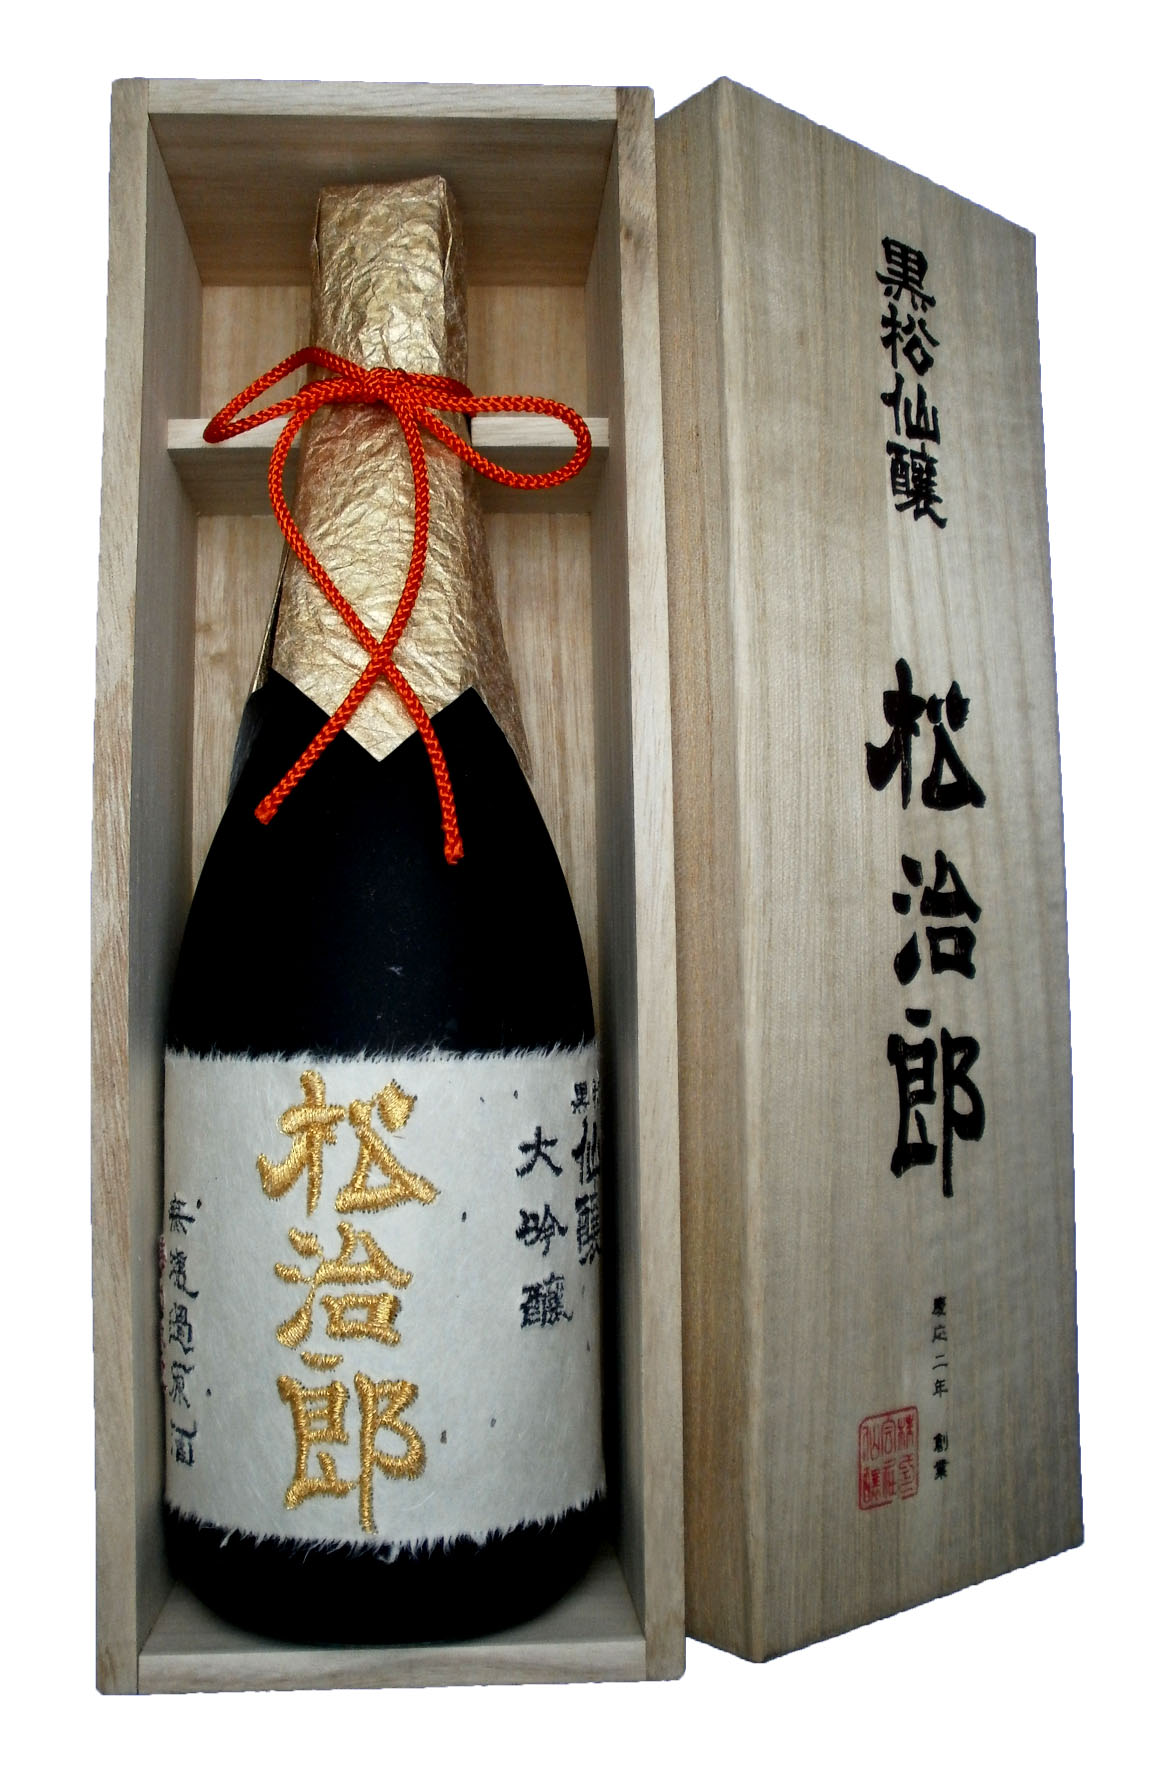 黒松仙醸
松治郎
慶応二年 創業
黒松
仙醸
大吟醸
松治郎
無濾過原酒